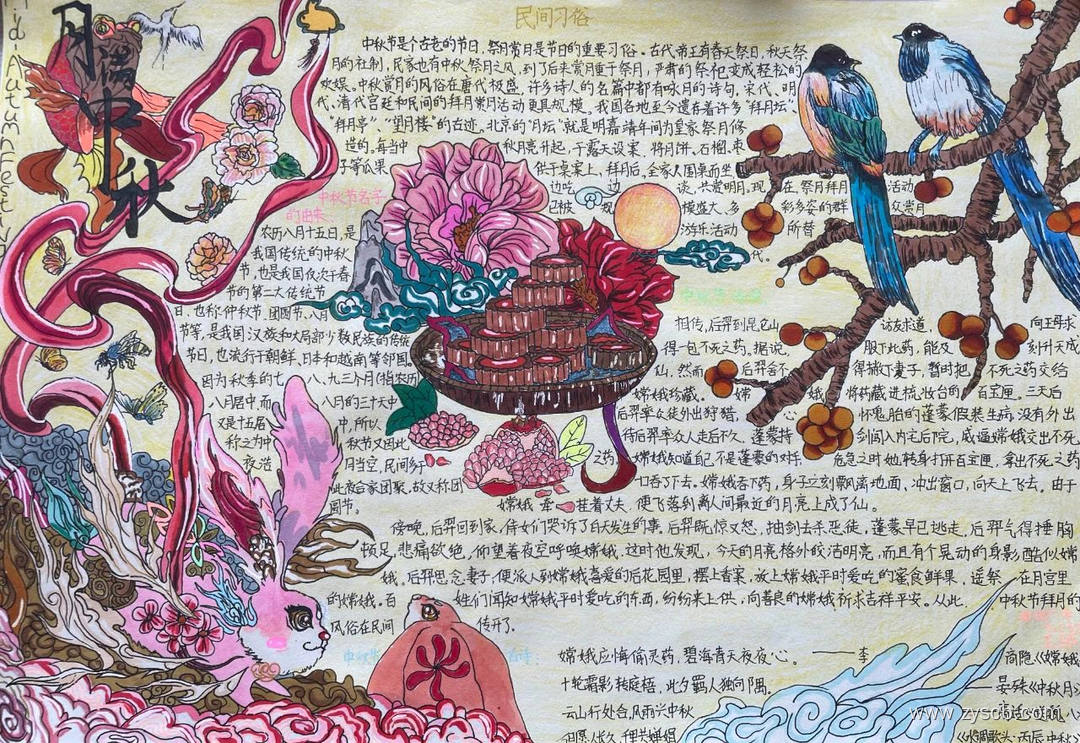 Mid-Autumn Festival
情中秋
民间习俗
中秋节是个古老的节日,祭月赏月是节日的重要习俗。古代帝王有春天祭日,秋天祭
月的社制,民家也有中秋祭月之风,到了后来赏月重于祭月,严肃的祭祀变成轻松的
欢娱。中秋赏月的风俗在唐代极盛,许多诗人的名篇中都有咏月的诗句,宋代、明
代、清代宫廷和民间的拜月赏月活动更具规模。我国各地至今遗存着许多“拜月坛”、
“拜月亭”、“望月楼”的古迹。北京的“月坛”就是明嘉靖年间为皇家祭月修
造的。每当中秋月亮升起,于露天设案,将月饼、石榴、枣
子等瓜果供于桌案上,拜月后,全家人围桌而坐,
边吃边谈,共赏明月。现在,祭月拜月活动
已被规模盛大、多彩多姿的群众赏月
游乐活动所替
代。
中秋节名字
的由来
农历八月十五日,是
我国传统的中秋
节,也是我国仅次于春
节的第二大传统节
日,也称仲秋节、团圆节、八月
节等,是我国汉族和大局部少数民族的传统
节日,也流行于朝鲜、日本和越南等邻国。
因为秋季的七、八、九三个月(指农历)
八月居中,而八月的三十天中
又是十五居中,所以
称之为中秋节。又因此
夜浩月当空,民间多于
此夜合家团聚,故又称团
圆节。
相传,后羿到昆仑山访友求道,向王母求
得一包不死之药。据说,服下此药,能及刻升天成
仙,然而后羿舍不得撇下妻子,暂时把不死之药交给
嫦娥珍藏。嫦娥将药藏进梳妆台的百宝匣。三天后
后羿率众徒外出狩猎,心怀鬼胎的蓬蒙假装生病,没有外出
待后羿率众人走后不久,蓬蒙持剑闯入内宅后院,威逼嫦娥交出不死
之药。嫦娥知道自己不是蓬蒙的对手,危急之时她转身打开百宝匣,拿出不死之药
一口吞了下去。嫦娥吞下药,身子立刻飘离地面、冲出窗口,向天上飞去。由于
嫦娥牵挂着丈夫,便飞落到离人间最近的月亮上成了仙。
傍晚,后羿回到家,侍女们哭诉了白天发生的事。后羿既惊又怒,抽剑去杀恶徒,蓬蒙早已逃走,后羿气得捶胸
顿足,悲痛欲绝,仰望着夜空呼唤嫦娥。这时他发现,今天的月亮格外皎洁明亮,而且有个晃动的身影酷似嫦
娥。后羿思念妻子,便派人到嫦娥喜爱的后花园里,摆上香案,放上嫦娥平时爱吃的蜜食鲜果,遥祭在月宫里
的嫦娥。百姓们闻知嫦娥平时爱吃的东西,纷纷来上供,向善良的嫦娥祈求吉祥平安。从此,中秋节拜月的
风俗在民间传开了。
古诗:
嫦娥应悔偷灵药,碧海青天夜夜心。——李商隐《嫦娥》
十轮霜影转庭梧,此夕羁人独向隅。——晏殊《中秋月》
云山行处合,风雨兴中秋
但愿人长久,千里共婵娟 《水调歌头·丙辰中秋》
www.zyscb.com